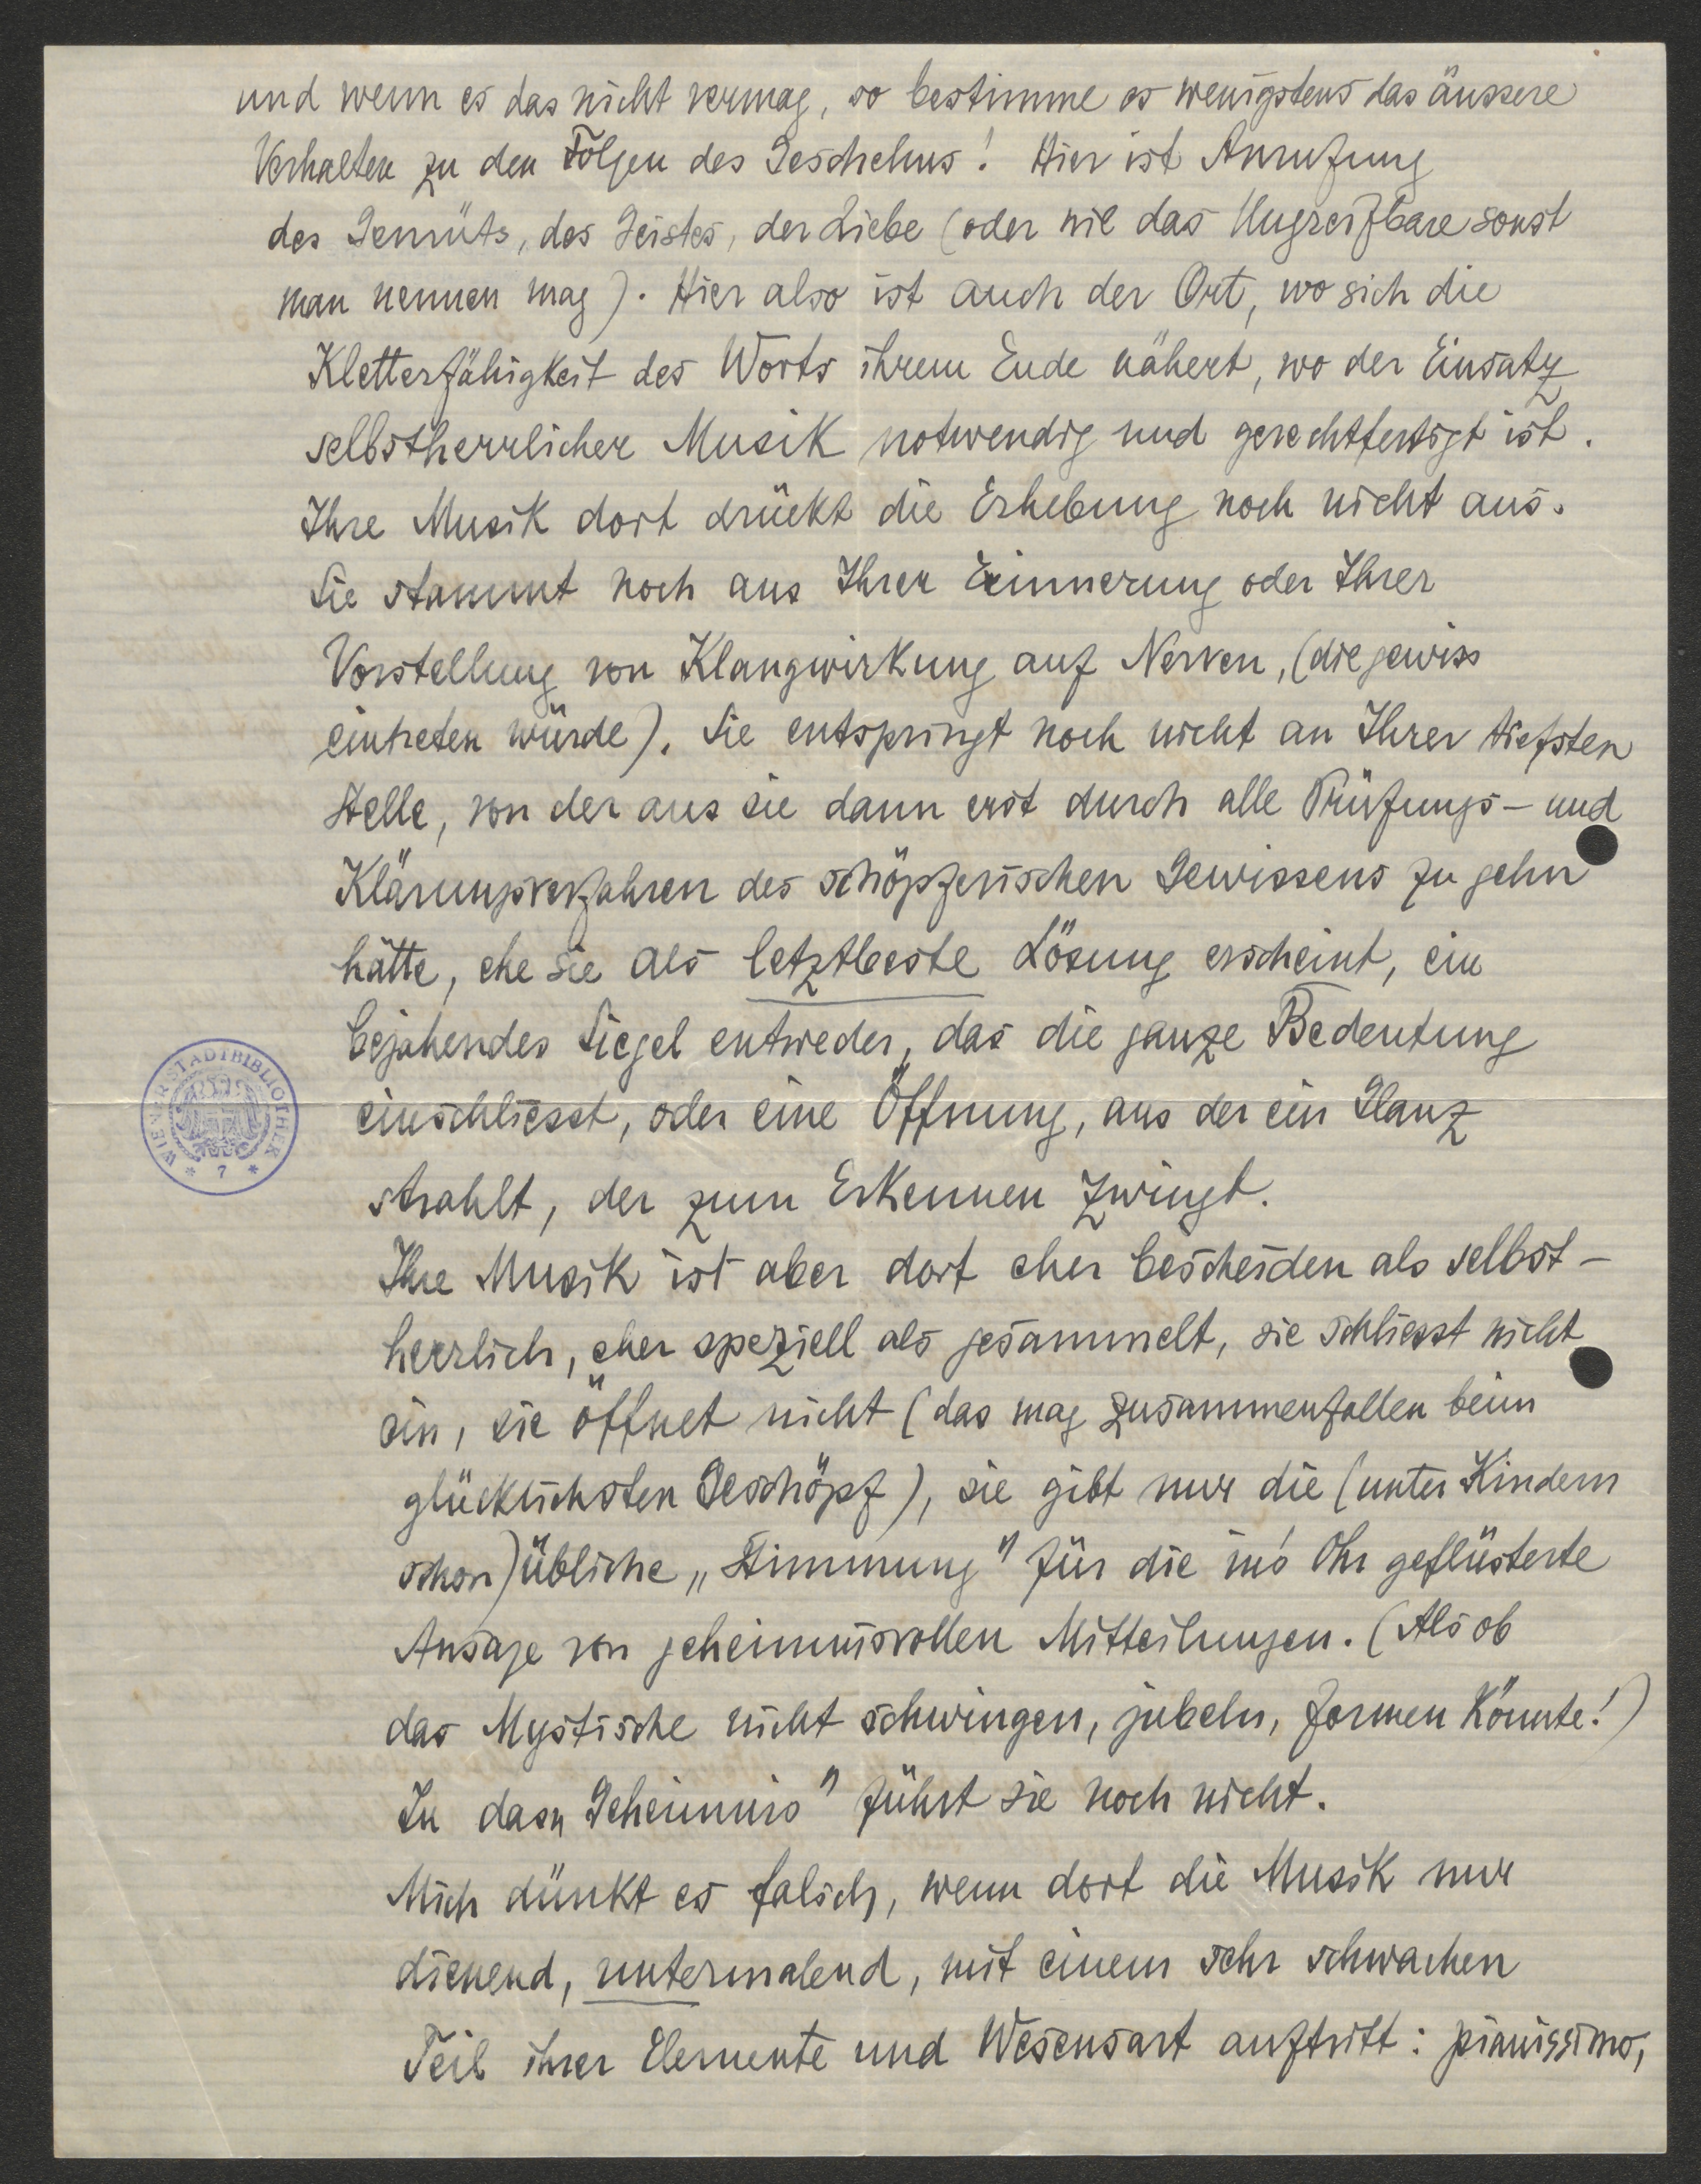 und wenn es das nicht vermag, so bestimme es wenigstens das äussere
Verhalten zu den Folgen des Geschehns! Hier ist Anrufung
des Gemüts, des Geistes, der Liebe (oder wie das Ungreifbare sonst
man nennen mag). Hier also ist auch der Ort, wo sich die
Kletterfähigkeit des Worts ihrem Ende nähert, wo der Einsatz
selbstherrlicher Musik notwendig und gerechtfertigt ist.
Ihre Musik dort drückt die Erhebung noch nicht aus.
Sie stammt noch aus Ihrer Erinnerung oder Ihrer
Vorstellung von Klangwirkung auf Nerven, (die gewiss
eintreten würde). Sie entspringt noch nicht an Ihrer tiefsten
Stelle, von der aus sie dann erst durch alle Prüfungs- und
Klärungsverfahren des schöpferischen Gewissens zu gehn
hätte, ehe sie als letztbeste Lösung erscheint, ein
bejahendes Siegel entweder, das die ganze Bedeutung
einschliesst, oder eine Öffnung, aus der ein Glanz
strahlt, der zum Erkennen zwingt.
Ihre Musik ist aber dort eher bescheiden als selbst-
herrlich, eher speziell als gesammelt, sie schliesst nicht
ein, sie öffnet nicht (das mag zusammenfallen beim
glücklichsten Geschöpf), sie gibt nur die (unter Kindern
schon) übliche „Stimmung" für die in's Ohr geflüsterte
Ansage von geheimnisvollen Mitteilungen. (Als ob
das Mystische nicht schwingen, jubeln, formen könnte!)
In das „Geheimnis" führt sie noch nicht.
Mich dünkt es falsch, wenn dort die Musik nur
dienend, untermalend, mit einem sehr schwachen
Teil ihrer Elemente und Wesensart auftritt: pianissimo,
WIENER STADTBIBLIOTHEK
* 7 *